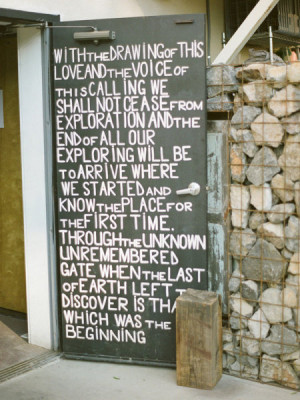 WITH THE DRAWING OF THIS
LOVE AND THE VOICE OF
THIS CALLING WE
SHALL NOT CEASE FROM
EXPLORATION AND THE
END OF ALL OUR
EXPLORING WILL BE
TO ARRIVE WHERE
WE STARTED AND
KNOW THE PLACE FOR
THE FIRST TIME.
THROUGH THE UNKNOWN
UNREMEMBERED
GATE WHEN THE LAST
OF EARTH LEFT
DISCOVER IS
WHICH WAS THE
BEGINNING